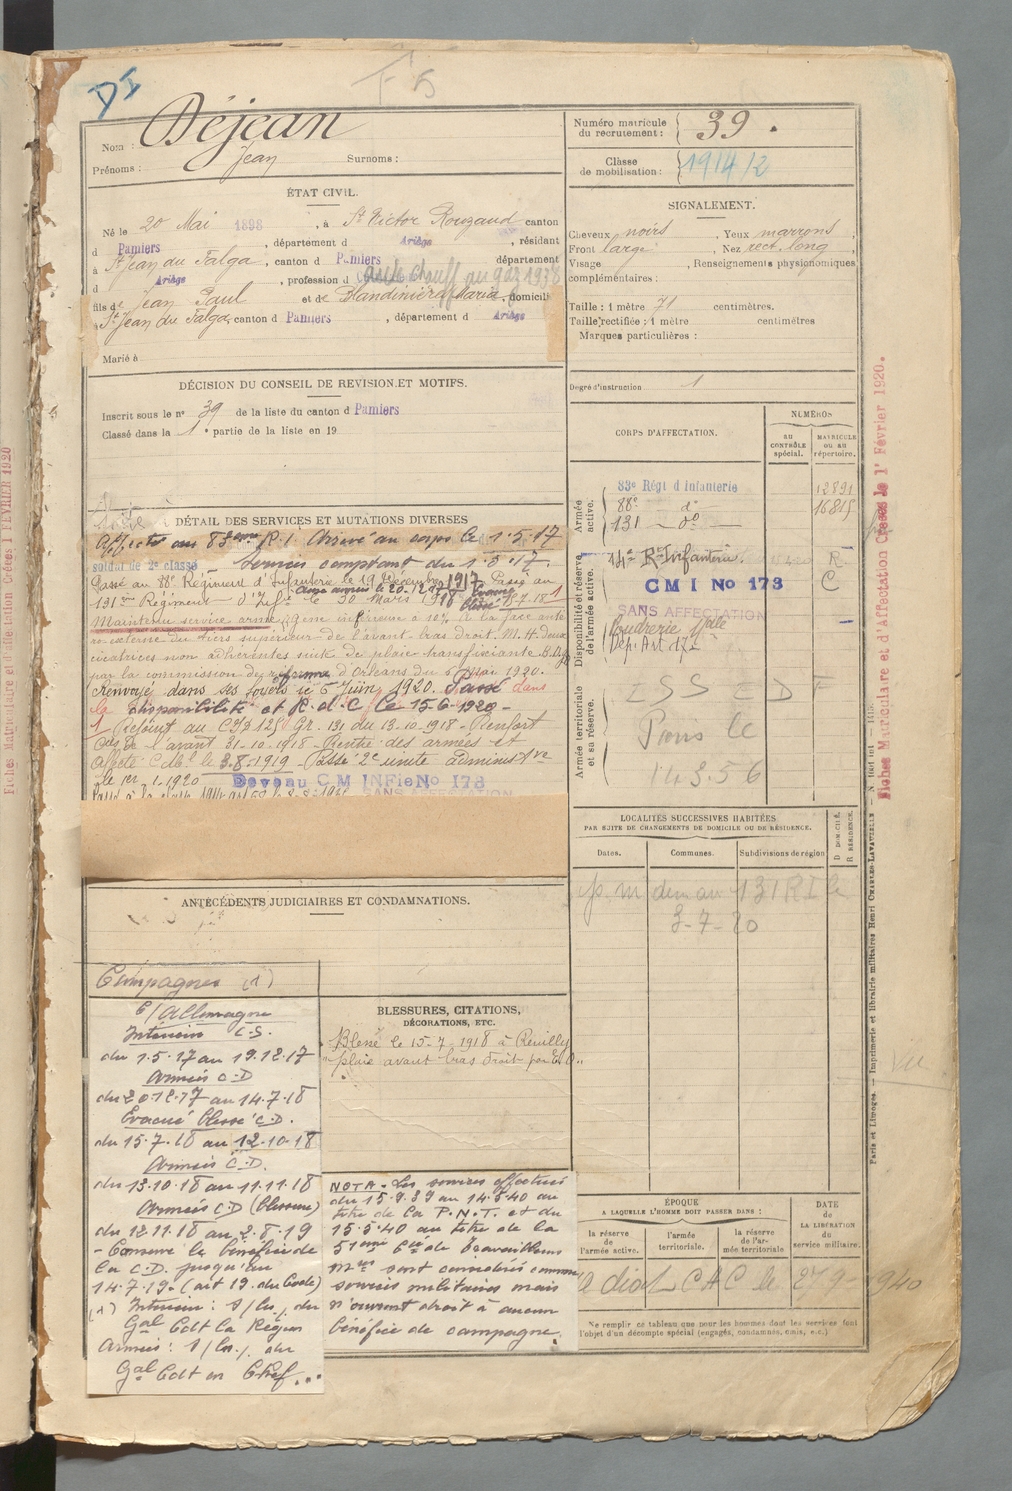 DS
F 5
Nom : Déjean
Prénoms : Jean Surnoms :
ÉTAT CIVIL.
Né le 20 Mai 1898, à St Victor Rouzaud canton
d Pamiers, département d Ariège, résidant
à St Jean du Falga, canton d Pamiers département
d Ariège, profession d chauff au gaz 1938
fils de Jean Paul et de Blandinières Maria, domicilié
à St Jean du Falga, canton d Pamiers, département d Ariège
Marié à
DÉCISION DU CONSEIL DE REVISION ET MOTIFS.
Inscrit sous le n° 39 de la liste du canton d Pamiers
Classé dans la 1e partie de la liste en 19
DÉTAIL DES SERVICES ET MUTATIONS DIVERSES
Affecté au 83ème R.I. Arrivé au corps le 1.5.17
soldat de 2e classe Services comptant du 1.5.17.
Passé au 88e Régiment d'Infanterie le 19 Décembre 1917 Passé au
aux armées le 20-12-17 Evacué
131ème Régiment d'Infie le 30 Mars 1918 blessé 15-7-18 1
Maintenu service armé, gêne inférieure à 10% de la face anté
ro externe du tiers supérieur de l'avant-bras droit. M.H. deux
cicatrices non adhérentes suite de plaie transfixiante
par la commission de réforme d'Orléans du 5 Mai 1920.
Renvoyé dans ses foyers le 6 Juin 1920. Passé dans
la disponibilité et R.d.C le 15-6-1920-
1 Rejoint au CID 125e Gr. 131 du 13-10-1918 - Renfort
de l'avant 31-10-1918 - Rentré des armées et
affecté le 3-8-1919 - Passé 2e unité administve
le 1er-1-1920 Devenu C M INFie No 173
SANS AFFECTATION
ANTÉCÉDENTS JUDICIAIRES ET CONDAMNATIONS.
Campagnes (1)
C/Allemagne
Intérieur C.S.
du 1.5.17 au 19.12.17
Armées C.D
du 20.12.17 au 14.7.18
Evacué blessé C.D.
du 15.7.18 au 12.10.18
Armées C.D.
du 13.10.18 au 11.11.18
Armées C.D (blessure)
du 12.11.18 au 2.8.19
- Conserve le bénéfice de
la C.D. jusqu'au
14.7.19. (art 19. du Code)
(1) Intérieur : S/ du
Gal Cdt la Région
Armées : S/ du
Gal Cdt en Chef...
BLESSURES, CITATIONS,
DÉCORATIONS, ETC.
Blessé le 15-7-1918 à Reuilly
"plaie avant bras droit par E.O."
NOTA - Les services effectués
du 15.9.39 au 14.5.40 au
titre de la P.N.T. et du
15.5.40 au titre de la
51ème Cie de Travailleurs
Mres sont considérés comme
services militaires mais
n'ouvrent droit à aucun
bénéfice de campagne.
Numéro matricule
du recrutement : 39.
Classe
de mobilisation : 1914/2
SIGNALEMENT.
Cheveux noirs, Yeux marrons,
Front large, Nez rect. long,
Visage, Renseignements physionomiques
complémentaires :
Taille : 1 mètre 71 centimètres.
Taille rectifiée : 1 mètre centimètres
Marques particulières :
Degré d'instruction 1
CORPS D'AFFECTATION.
NUMÉROS
AU CONTRÔLE spécial.
MATRICULE OU AU répertoire.
Armée active.
83e Régt d'Infanterie 12891
88e do 16815
131 do
Disponibilité et réserve de l'armée active.
14e R. Infanterie R
CMI No 173 C
SANS AFFECTATION
Poudrerie
Dép. Art 17e
Armée territoriale et sa réserve.
ISS EDF
Paris le
14 3. 56
LOCALITÉS SUCCESSIVES HABITÉES
PAR SUITE DE CHANGEMENTS DE DOMICILE OU DE RÉSIDENCE.
Dates. Communes. Subdivisions de région
D DOMICILE. R RÉSIDENCE.
au 131 RI le
3-7-20
ÉPOQUE
A LAQUELLE L'HOMME DOIT PASSER DANS :
la réserve de l'armée active.
l'armée territoriale.
la réserve de l'armée territoriale
DATE
de
LA LIBÉRATION
du
service militaire.
CAC le 27 9-1940
Ne remplir ce tableau que pour les hommes dont les services font
l'objet d'un décompte spécial (engagés, condamnés, omis, e.c.)
Fiches Matriculaire et d'Affectation Créées le 1er Février 1920.
Paris et Limoges. — Imprimerie et librairie militaires Henri CHARLES-LAVAUZELLE
Vu
Fiches Matriculaire et d'Affectation Créées 1 FEVRIER 1920